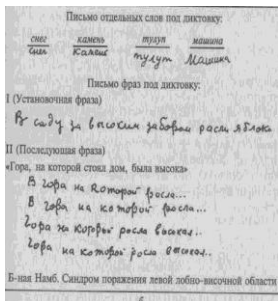 Письмо отдельных слов под диктовку:
снег камень тулуп машина
снег камень тулуп Машина
Письмо фраз под диктовку:
I (Установочная фраза)
В саду за высоким забором расли яблоки
II (Последующая фраза)
«Гора, на которой стоял дом, была высока»
В гора на которой росла...
В гора на которой росла...
Гора на которой росла высокая..
Гора на которой росла высокая..
Б-ная Намб. Синдром поражения левой лобно-височной области